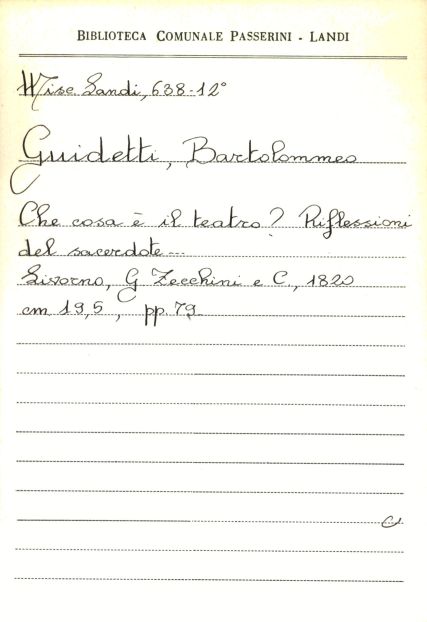 BIBLIOTECA COMUNALE PASSERINI - LANDI
Misc. Landi, 638-12°
Guidetti, Bartolommeo
Che cosa è il teatro? Riflessioni
del sacerdote ...
Livorno, G Zecchini e C., 1820
cm 19,5, pp. 79